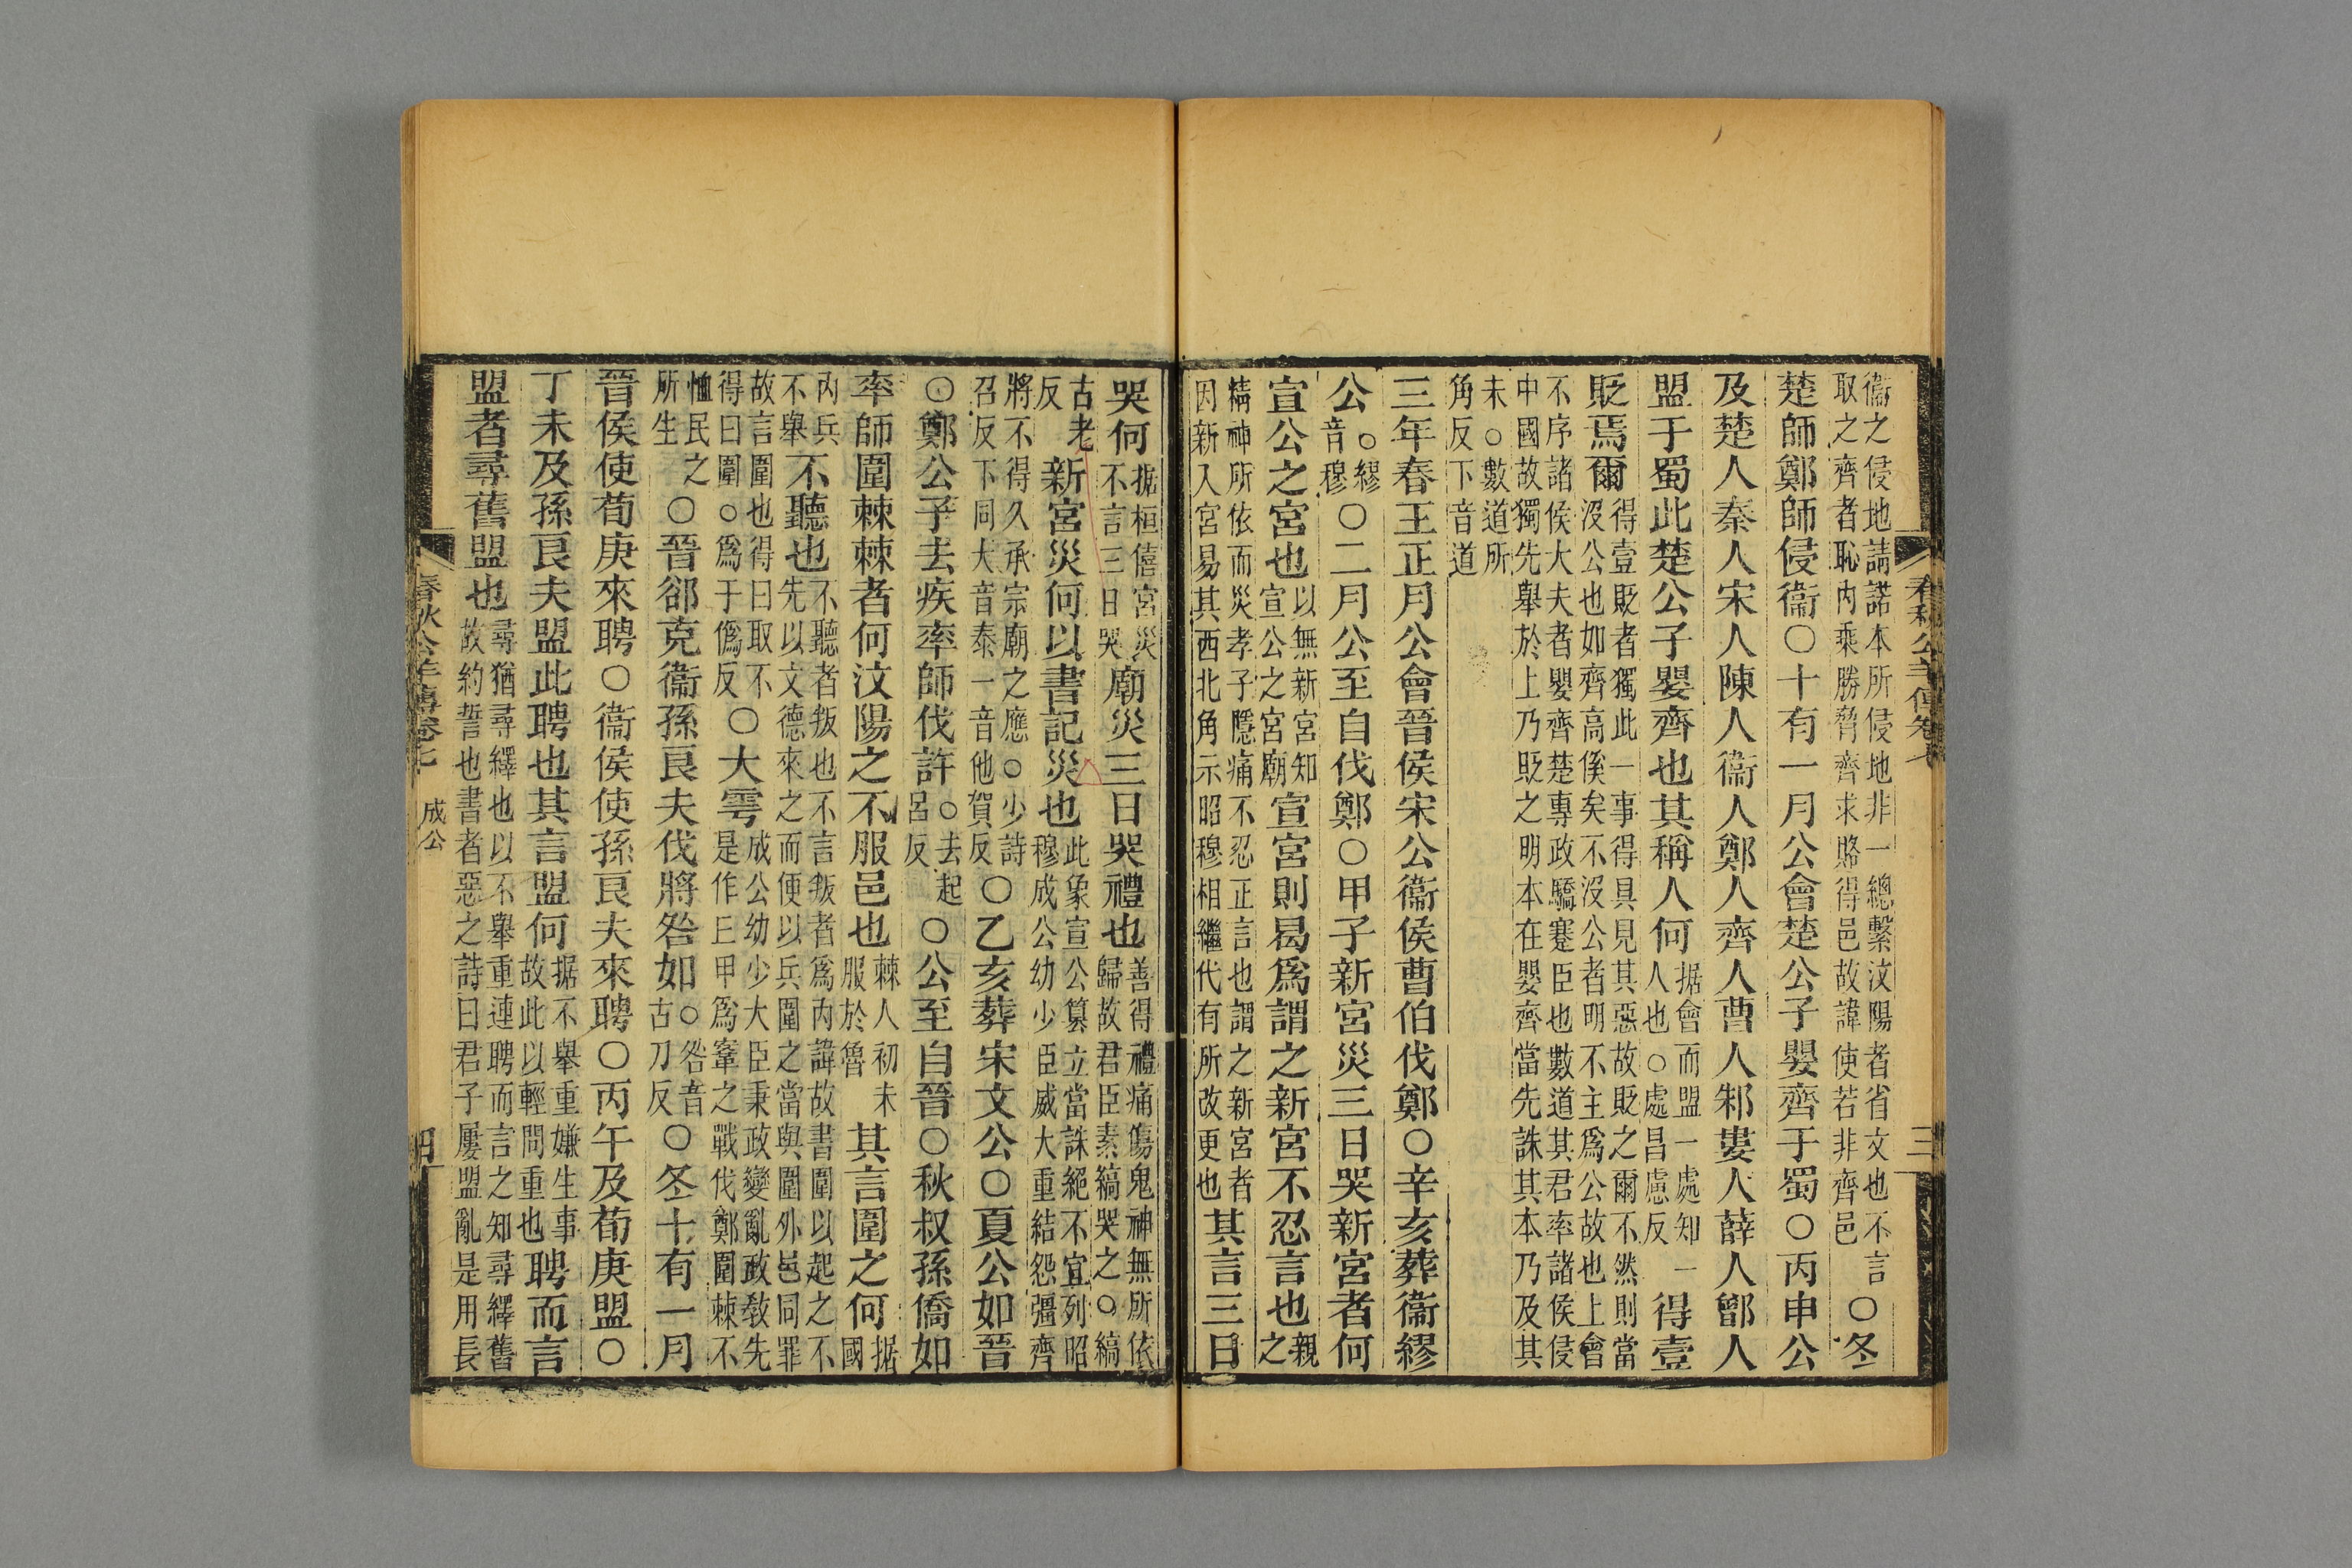 衞之侵地請諾本所侵地非一總繫汶陽者省文也不言
取之齊者恥內乘勝脅齊求賂得邑故諱使若非齊邑〇冬
楚師鄭師侵衞〇十有一月公會楚公子嬰齊于蜀〇丙申公
及楚人秦人宋人陳人衞人鄭人齊人曹人邾婁人薛人鄫人
盟于蜀此楚公子嬰齊也其稱人何据會而盟一處知一人也〇處昌慮反得壹
貶焉爾得壹貶者獨此一事得具見其惡故貶之爾不然則當
沒公也如齊高傒矣不沒公者明不主爲公故也上會
不序諸侯大夫者嬰齊楚專政驕蹇臣也數道其君率諸侯侵
中國故獨先舉於上乃貶之明本在嬰齊當先誅其本乃及其
末〇數道所
角反下音道
三年春王正月公會晉侯宋公衞侯曹伯伐鄭〇辛亥葬衞繆
公〇繆音穆〇二月公至自伐鄭〇甲子新宮災三日哭新宮者何
宣公之宮也以無新宮知宣公之宮廟宣宮則曷爲謂之新宮不忍言也親之
精神所依而災孝子隱痛不忍正言也謂之新宮者
因新入宮易其西北角示昭穆相繼代有所改更也其言三日
哭何据桓僖宮災不言三日哭廟災三日哭禮也善得禮痛傷鬼神無所依
歸故君臣素縞哭之〇縞
古老反新宮災何以書記災也此象宣公篡立當誅絕不宜列昭
穆成公幼少臣威大重結怨彊齊
將不得久承宗廟之應〇少詩
召反下同大音泰一音他賀反〇乙亥葬宋文公〇夏公如晉
〇鄭公子去疾率師伐許〇去起呂反〇公至自晉〇秋叔孫僑如
率師圍棘棘者何汶陽之不服邑也棘人初未服於魯其言圍之何据國
內兵不舉不聽也不聽者叛也不言叛者爲內諱故書圍以起之不
先以文德來之而便以兵圍之當與圍外邑同罪
故言圍也得曰取不
得曰圍〇爲于僞反〇大雩成公幼少大臣秉政變亂政敎先
是作丘甲爲鞌之戰伐鄭圍棘不
恤民之所生〇晉郤克衞孫良夫伐將咎如〇咎音古刀反〇冬十有一月
晉侯使荀庚來聘〇衞侯使孫良夫來聘〇丙午及荀庚盟〇
丁未及孫良夫盟此聘也其言盟何据不舉重嫌生事故此以輕問重也聘而言
盟者尋舊盟也尋猶尋繹也以不舉重連聘而言之知尋繹舊
故約誓也書者惡之詩曰君子屢盟亂是用長
春秋公羊傳卷七
三
春秋公羊傳卷七
成公
四